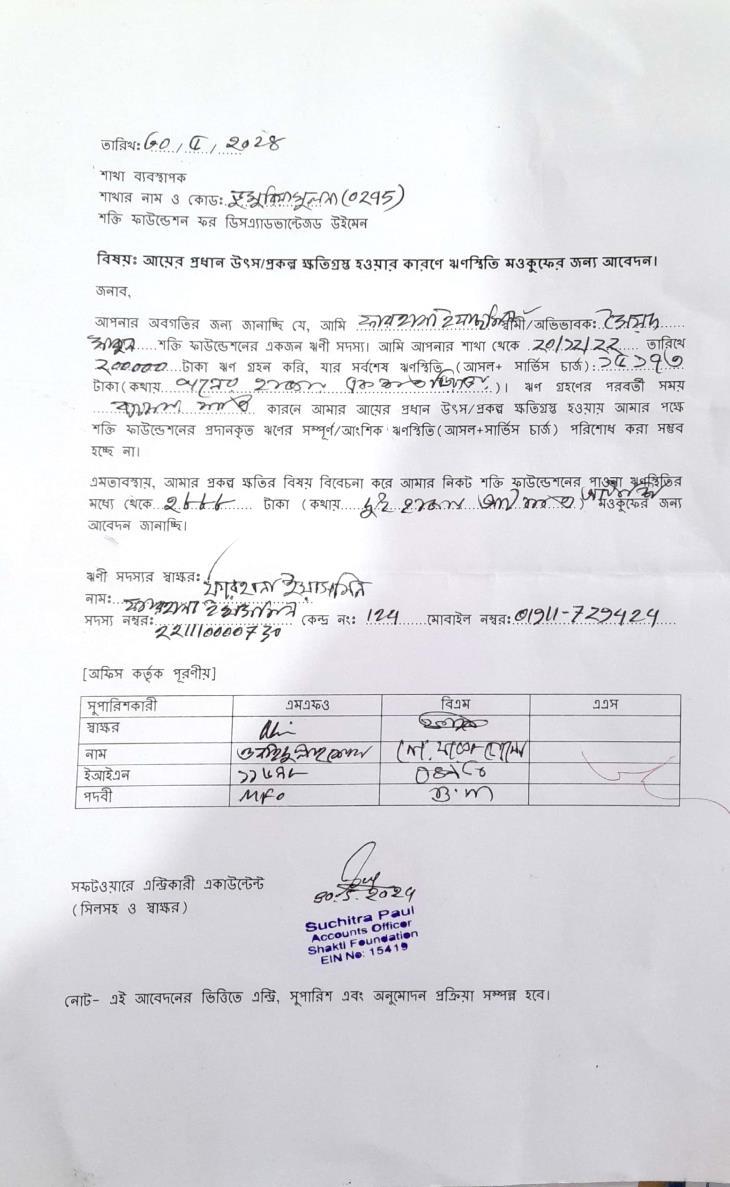 তারিখ: ৩০/৫/২০২৪
শাখা ব্যবস্থাপক
শাখার নাম ও কোড: (0295)
শক্তি ফাউন্ডেশন ফর ডিসএ্যাডভান্টেজড উইমেন
বিষয়: আয়ের প্রধান উৎস/প্রকল্প ক্ষতিগ্রস্ত হওয়ার কারণে ঋণস্থিতি মওকুফের জন্য আবেদন।
জনাব,
আপনার অবগতির জন্য জানাচ্ছি যে, আমি ফারহানা ইয়াছমিন স্বামী/অভিভাবক: সৈয়দ
শক্তি ফাউন্ডেশনের একজন ঋণী সদস্য। আমি আপনার শাখা থেকে ২০/১২/২২ তারিখে
২০০০০০ টাকা ঋণ গ্রহন করি, যার সর্বশেষ ঋণস্থিতি (আসল+ সার্ভিস চার্জ): ১৫১৭৩
টাকা(কথায় পনের হাজার একশত তিয়াত্তর)। ঋণ গ্রহণের পরবর্তী সময়
কারনে আমার আয়ের প্রধান উৎস/প্রকল্প ক্ষতিগ্রস্ত হওয়ায় আমার পক্ষে
শক্তি ফাউন্ডেশনের প্রদানকৃত ঋণের সম্পূর্ণ/আংশিক ঋণস্থিতি(আসল+সার্ভিস চার্জ) পরিশোধ করা সম্ভব
হচ্ছে না।
এমতাবস্থায়, আমার প্রকল্প ক্ষতির বিষয় বিবেচনা করে আমার নিকট শক্তি ফাউন্ডেশনের পাওনা ঋণস্থিতির
মধ্যে থেকে ২৮৮৮ টাকা (কথায় দুই হাজার আট শত) মওকুফের জন্য
আবেদন জানাচ্ছি।
ঋণী সদস্যর স্বাক্ষর: ফারহানা ইয়াসমিন
নাম: ফারহানা ইয়াছমিন
সদস্য নম্বর: 221110000730 কেন্দ্র নং: 124 মোবাইল নম্বর: 01911-729424
[অফিস কর্তৃক পূরণীয়]
সুপারিশকারী এমএফও বিএম এএস
স্বাক্ষর
নাম
ইআইএন
পদবী MFO B.M
সফটওয়ারে এন্ট্রিকারী একাউন্টেন্ট
(সিলসহ ও স্বাক্ষর)
30.5.2024
Suchitra Paul
Accounts Officer
Shakti Foundation
EIN No: 15419
নোট- এই আবেদনের ভিত্তিতে এন্ট্রি, সুপারিশ এবং অনুমোদন প্রক্রিয়া সম্পন্ন হবে।